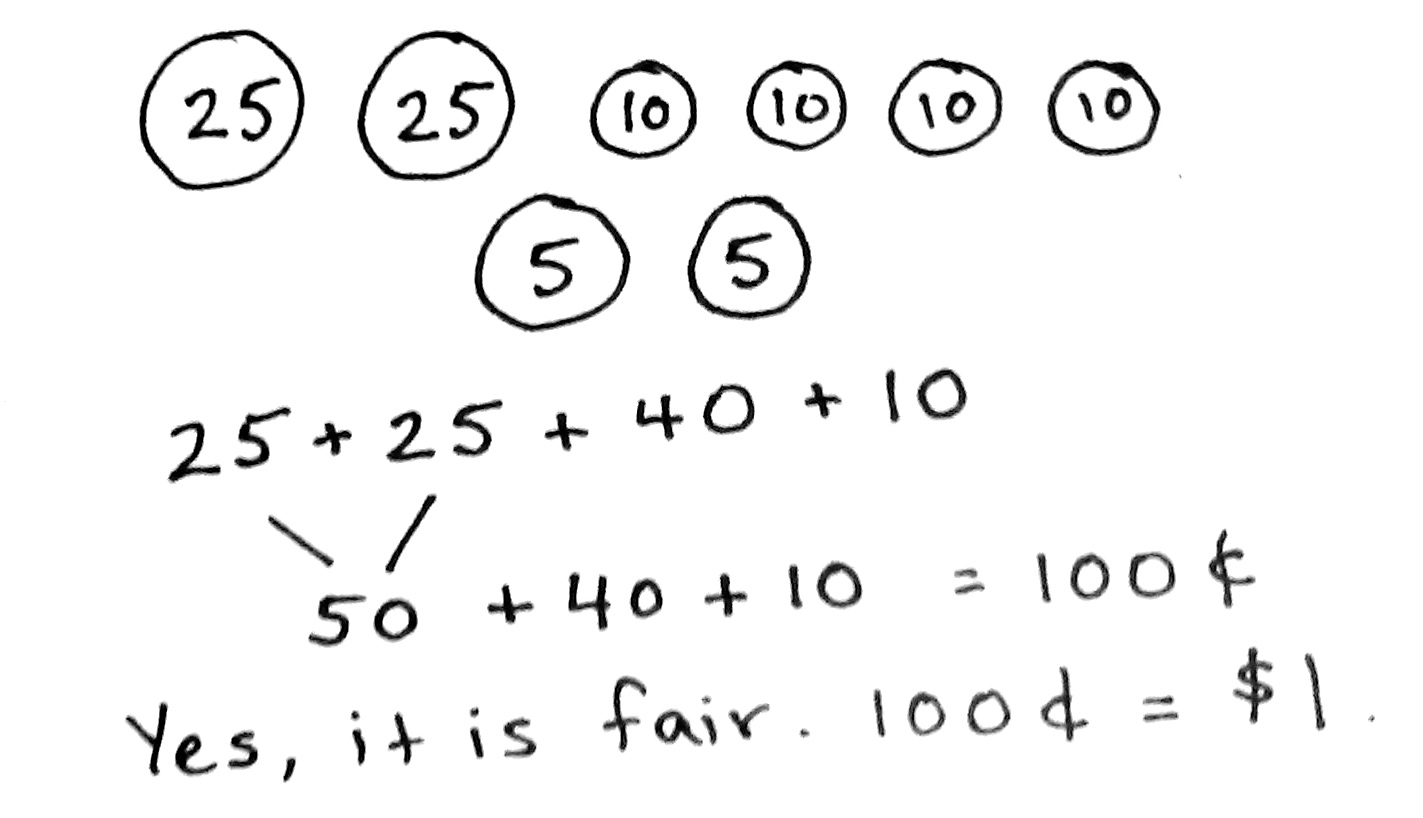 25 25 10 10 10 10
5 5
25 + 25 + 40 + 10
50 + 40 + 10 = 100¢
Yes, it is fair. 100¢ = $1.